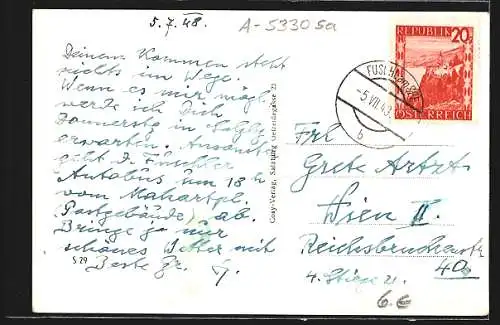 5.7.48.
A-5330 Sa
Deinem Kommen steht
nichts im Wege.
Wenn es mir mögl.
werde ich Dich
Donnerstg in Salzbg
erwarten. Ansonsten
geht d. Fuschler
Autobus um 18 h
vom Mahartpl.
(Postgebäude) ab.
Bringe ja nur
schönes Wetter mit
Beste Gr.
S 29
Cosy-Verlag, Salzburg Getreidegasse 22
REPUBLIK 20g
ÖSTERREICH
FUSCHL
-5.VII.48
b
Frl
Grete Artzt
Wien II.
Reichsbrückenstr
4a
4. Stiege 21.
6.€